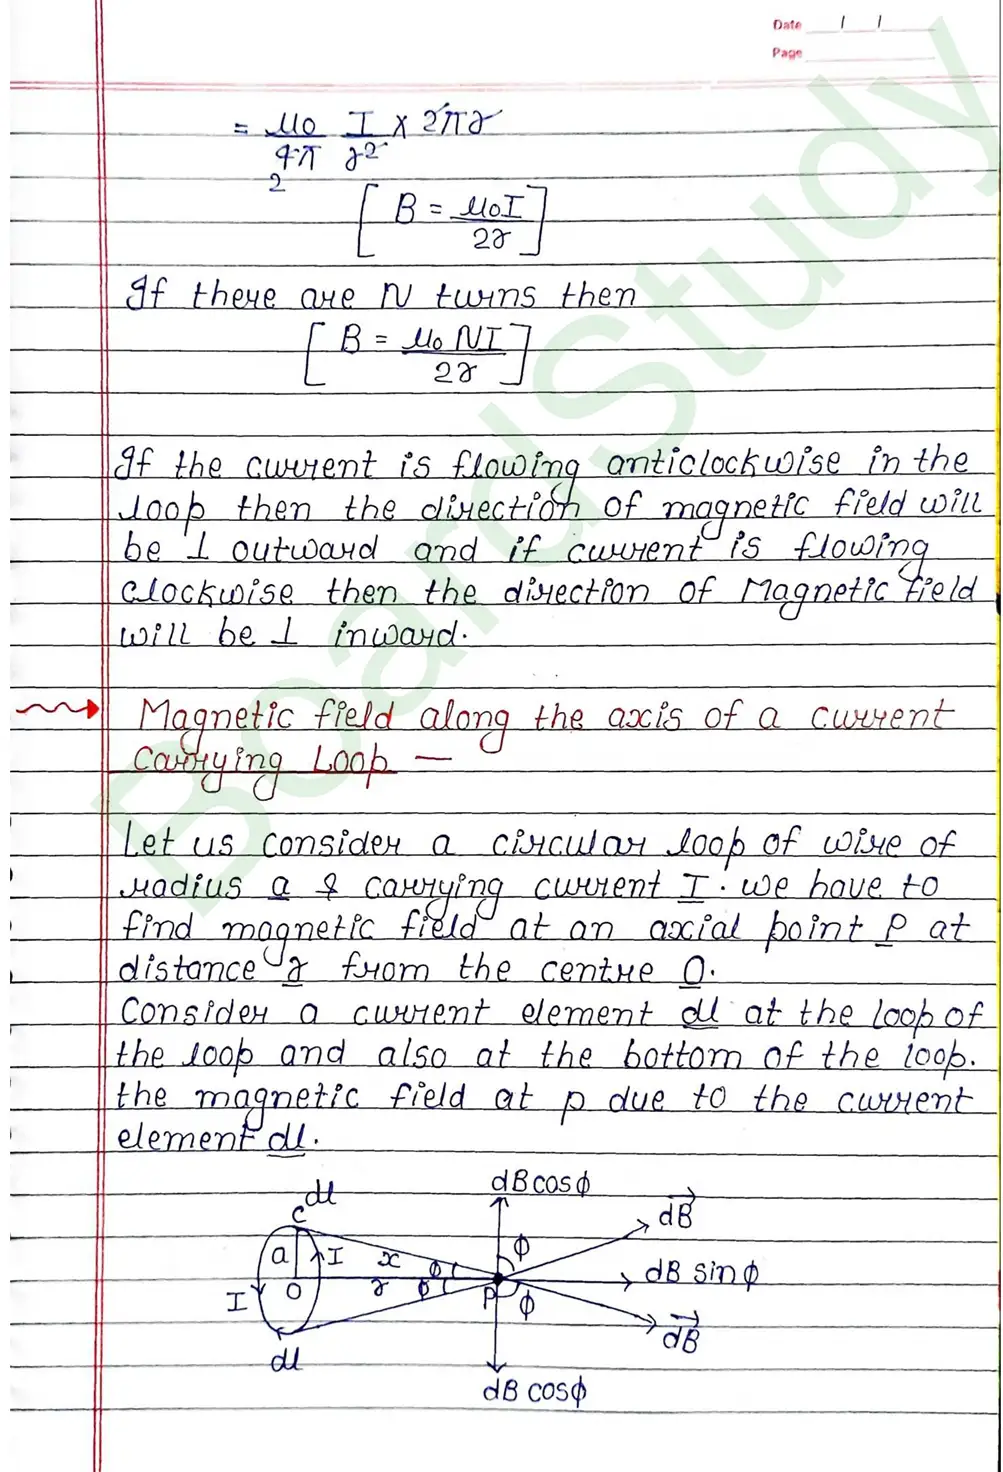 Date / /
Page
= μ0/4π I/r² × 2πr
2
[B = μ0I/2r]
If there are N turns then
[B = μ0 NI/2r]
If the current is flowing anticlockwise in the
loop then the direction of magnetic field will
be ⊥ outward and if current is flowing
clockwise then the direction of Magnetic field
will be ⊥ inward.
Magnetic field along the axis of a current
Carrying Loop —
Let us consider a circular loop of wire of
radius a & carrying current I. we have to
find magnetic field at an axial point P at
distance r from the centre O.
Consider a current element dl at the loop of
the loop and also at the bottom of the loop.
the magnetic field at p due to the current
element dl.
dB cosϕ
dl
C
dB
a I x ϕ ϕ
dB sinϕ
I O r ϕ P ϕ
dB
dl
dB cosϕ
BoardStudy